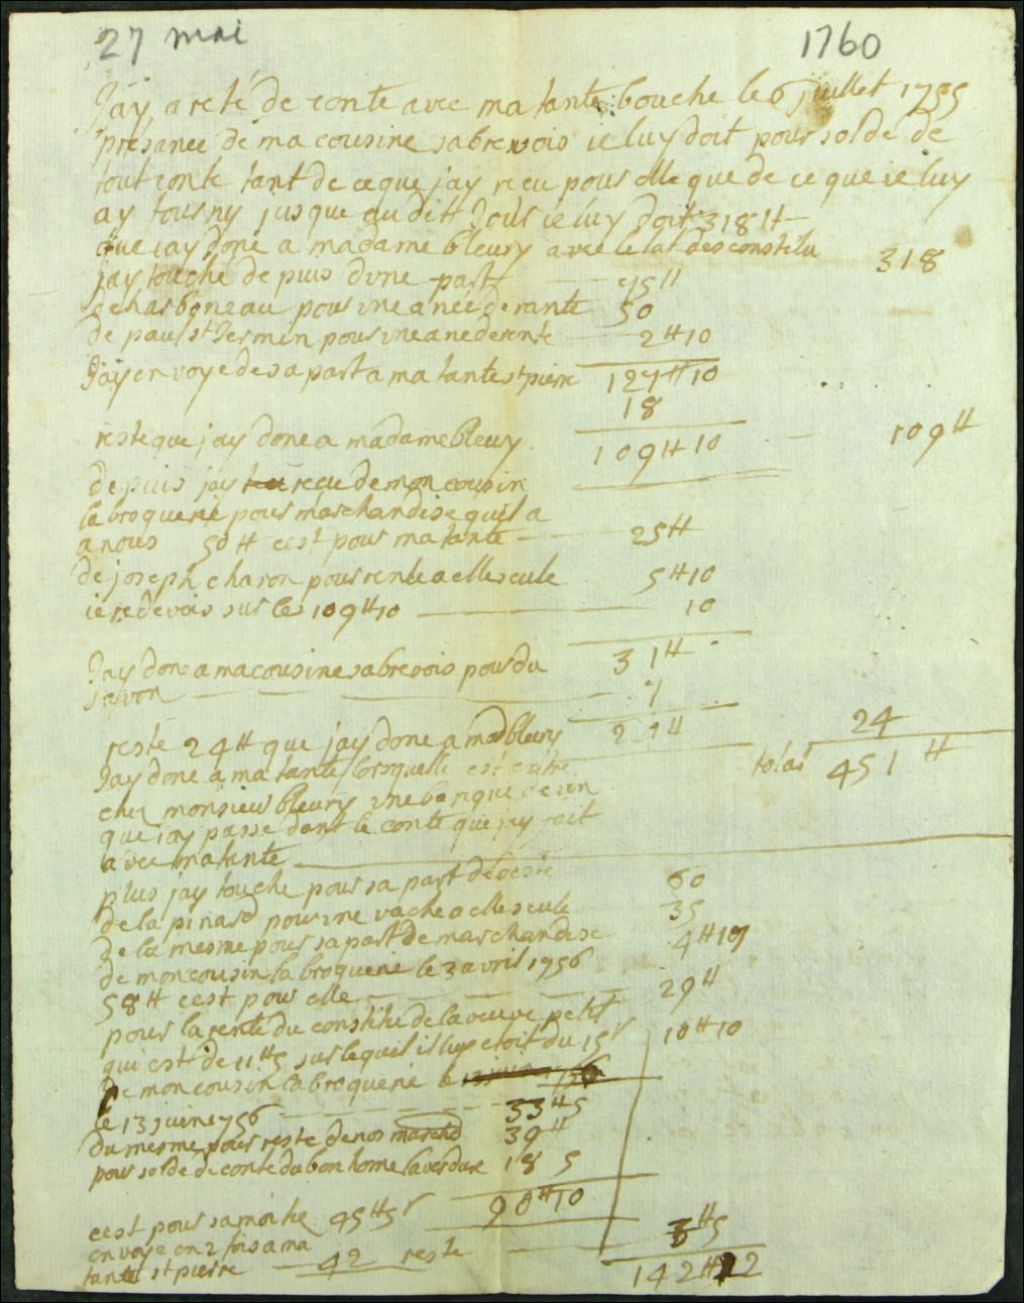 27 mai 1760
J'ay areté de conte avec ma tante bouche le 6 juillet 1755
presance de ma cousine sabrevois ie luy doit pour solde de
tout conte tant de ce que jay recu pour elle que de ce que ie luy
ay fourny jusque au dit Jour ie luy doit 318 ll
que iay doné a madame bleury avec le constitu 318
jay touché depuis dune part 75 ll
charboneau pour une anee de rante 50
de paul st Jermin pour une anee de rente 2 ll 10
J'ay envoye de sa part a ma tante st pierre 127 ll 10
18
reste que jay done a madame bleury 109 ll 10 109 ll
depuis jay recu de mon cousin
la broquerie pour marchandise quil a
a nous 50 ll cest pour ma tante 25 ll
de joseph charon pour rente a elle seule 5 ll 10
ie redevois sur les 109 ll 10 10
Jay done a ma cousine sabrevois pour du 31 ll
savon 7
reste 24 ll que jay done a mad bleury 24 ll 24
Jay done a ma tante lorsquelle est entré total 451 ll
chez monsieur bleury une barique de vin
que iay passe dant le conte que jay fait
avec ma tante
plus jay touche pour sa part 60
de la pinard pour une vache a elle seule 35
de la mesme pour sa part de marchandise 4 ll 17
de mon cousin la broquerie le 3 avril 1756
58 ll cest pour elle 29 ll
pour la rente du constitu de la veuve petit
qui est de 11 ll 5 sur lequel il luy etoit du 15 s 10 ll 10
de mon cousin la broquerie le
le 13 juin 1756 33 ll 5
du mesme pour reste de nos marchd 39 ll
pour solde de conte du bon home laverdure 18 5
90 ll 10
cest pour sa moitie 45 ll 5 s
envoye en 2 fois a ma 3 ll 5
tante st pierre 42 reste 142 ll 12